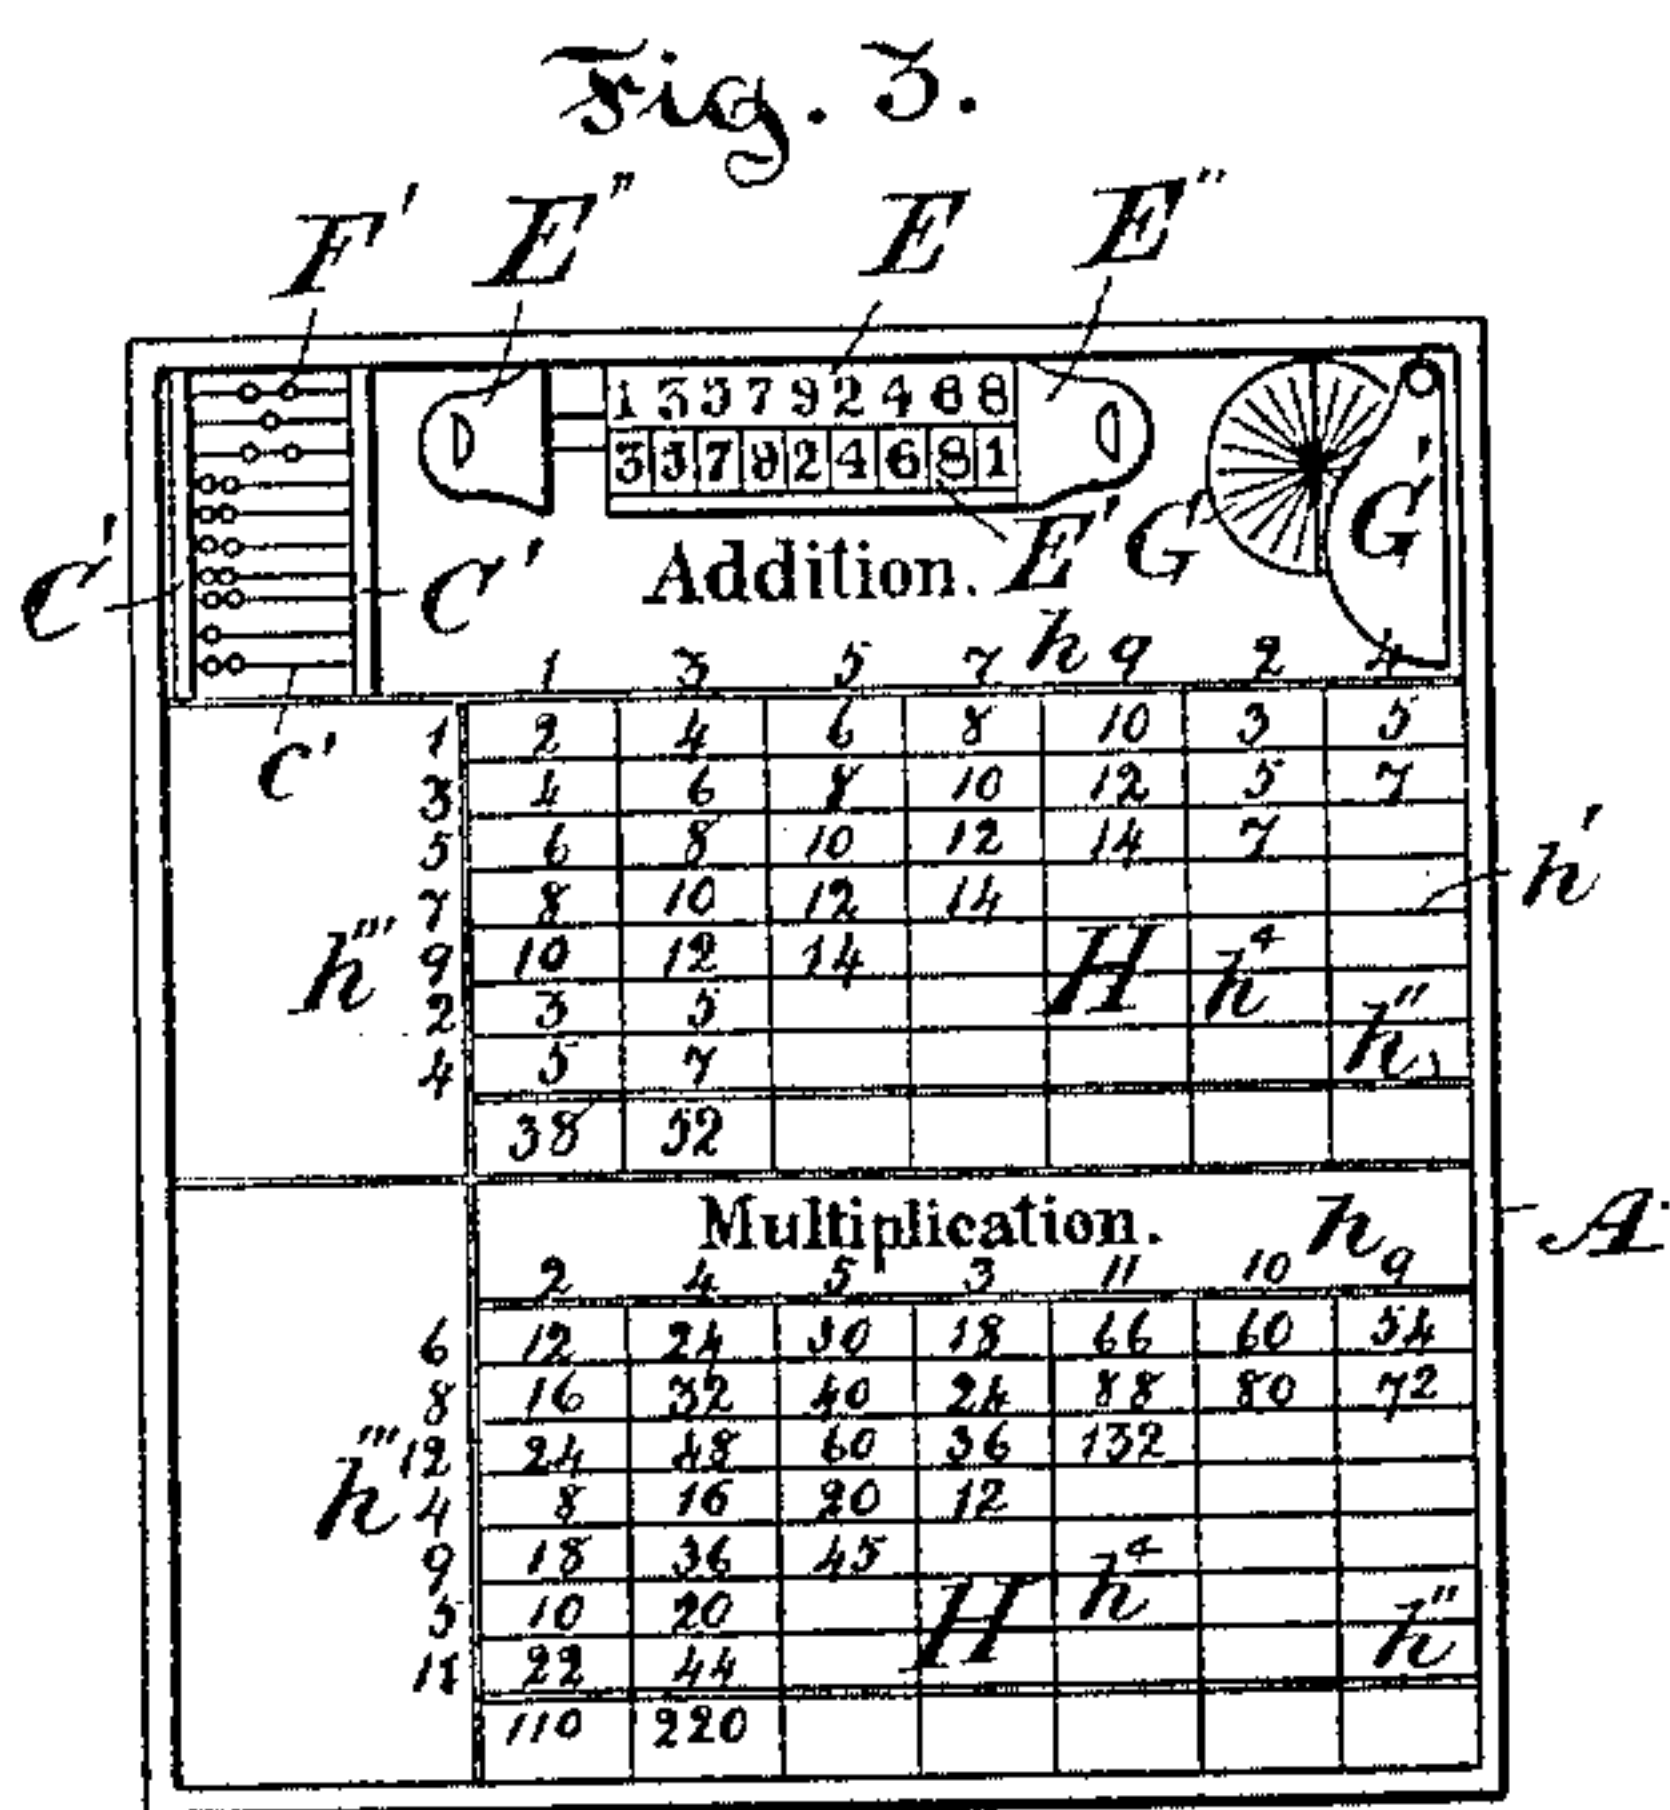 Fig. 3.
F' E" E E"
1 3 5 7 9 2 4 6 8
3 5 7 9 2 4 6 8 1
C' C' E' G' G'
Addition.
h
1 3 5 7 9 2 4
c'
1 2 4 6 8 10 3 5
3 4 6 8 10 12 5 7
5 6 8 10 12 14 7
h'
7 8 10 12 14
h''' H h⁴
9 10 12 14
2 3 5
h"
4 5 7
38 52
Multiplication. h
A
2 4 5 3 11 10 9
6 12 24 30 18 66 60 54
8 16 32 40 24 88 80 72
12 24 48 60 36 132
h'''
4 8 16 20 12
9 18 36 45
H h⁴ h"
5 10 20
11 22 44
110 220